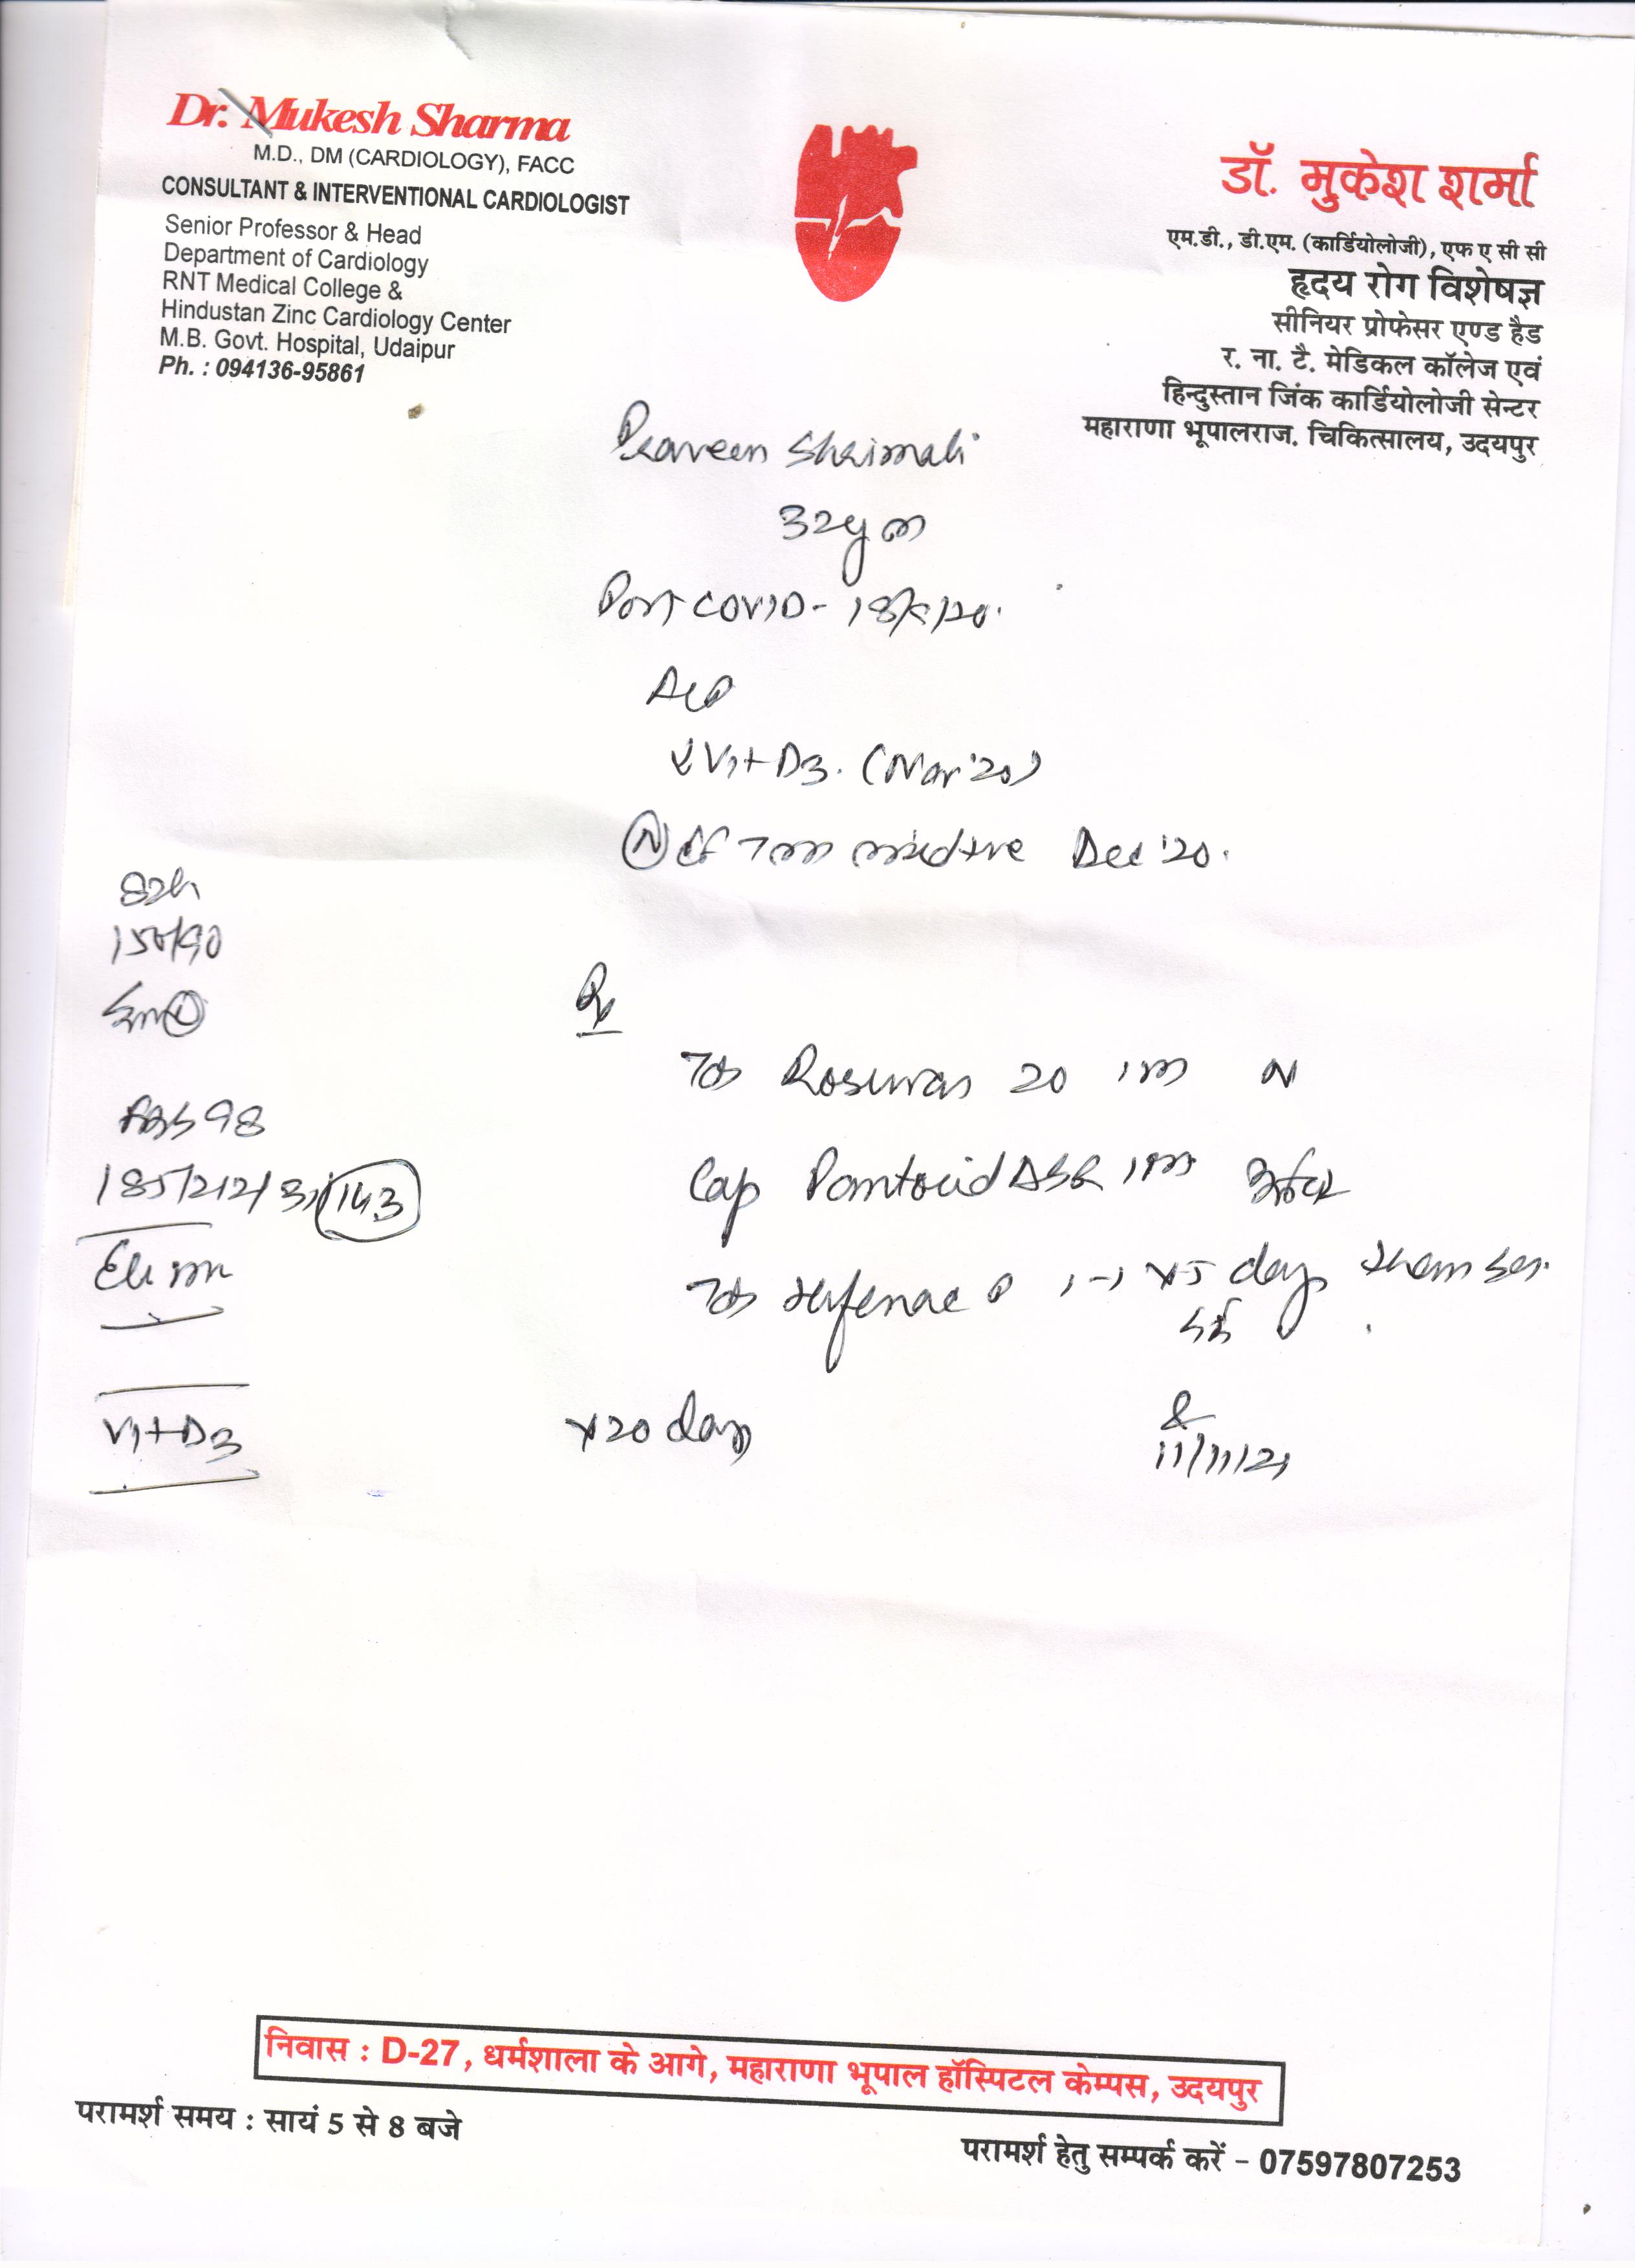 Dr. Mukesh Sharma
M.D., DM (CARDIOLOGY), FACC
CONSULTANT & INTERVENTIONAL CARDIOLOGIST
Senior Professor & Head
Department of Cardiology
RNT Medical College &
Hindustan Zinc Cardiology Center
M.B. Govt. Hospital, Udaipur
Ph. : 094136-95861
डॉ. मुकेश शर्मा
एम.डी., डी.एम. (कार्डियोलोजी), एफ ए सी सी
हृदय रोग विशेषज्ञ
सीनियर प्रोफेसर एण्ड हैड
र. ना. टै. मेडिकल कॉलेज एवं
हिन्दुस्तान जिंक कार्डियोलोजी सेन्टर
महाराणा भूपालराज. चिकित्सालय, उदयपुर
Praveen Shrimali
32y m
Post COVID-
Vit D3. (Nov'20)
N EF Dec '20.
150/90
FBS 98
185/212/31/143
Vit D3
Rx
Tab Rosuvas 20 N
Cap Pantocid DSR
Tab P 1-1 x5 days
x20 days
11/11/21
निवास : D-27, धर्मशाला के आगे, महाराणा भूपाल हॉस्पिटल केम्पस, उदयपुर
परामर्श समय : सायं 5 से 8 बजे
परामर्श हेतु सम्पर्क करें - 07597807253